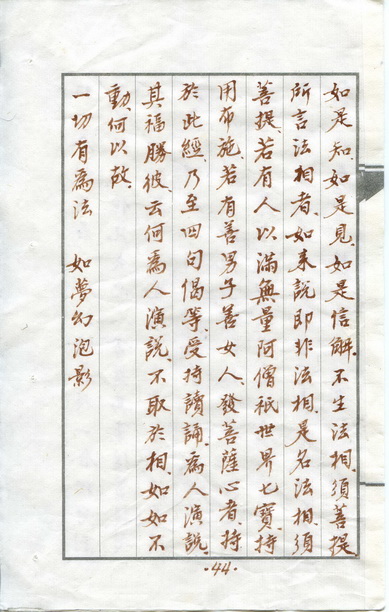 如是知、如是見、如是信解、不生法相、須菩提、
所言法相者、如来説即非法相、是名法相、須
菩提、若有人以滿無量阿僧祇世界七寶、持
用布施、若有善男子善女人、發菩薩心者、持
於此經、乃至四句偈等、受持讀誦、為人演說、
其福勝彼、云何為人演說、不取於相、如如不
動、何以故、
一切有為法 如夢幻泡影
·44·